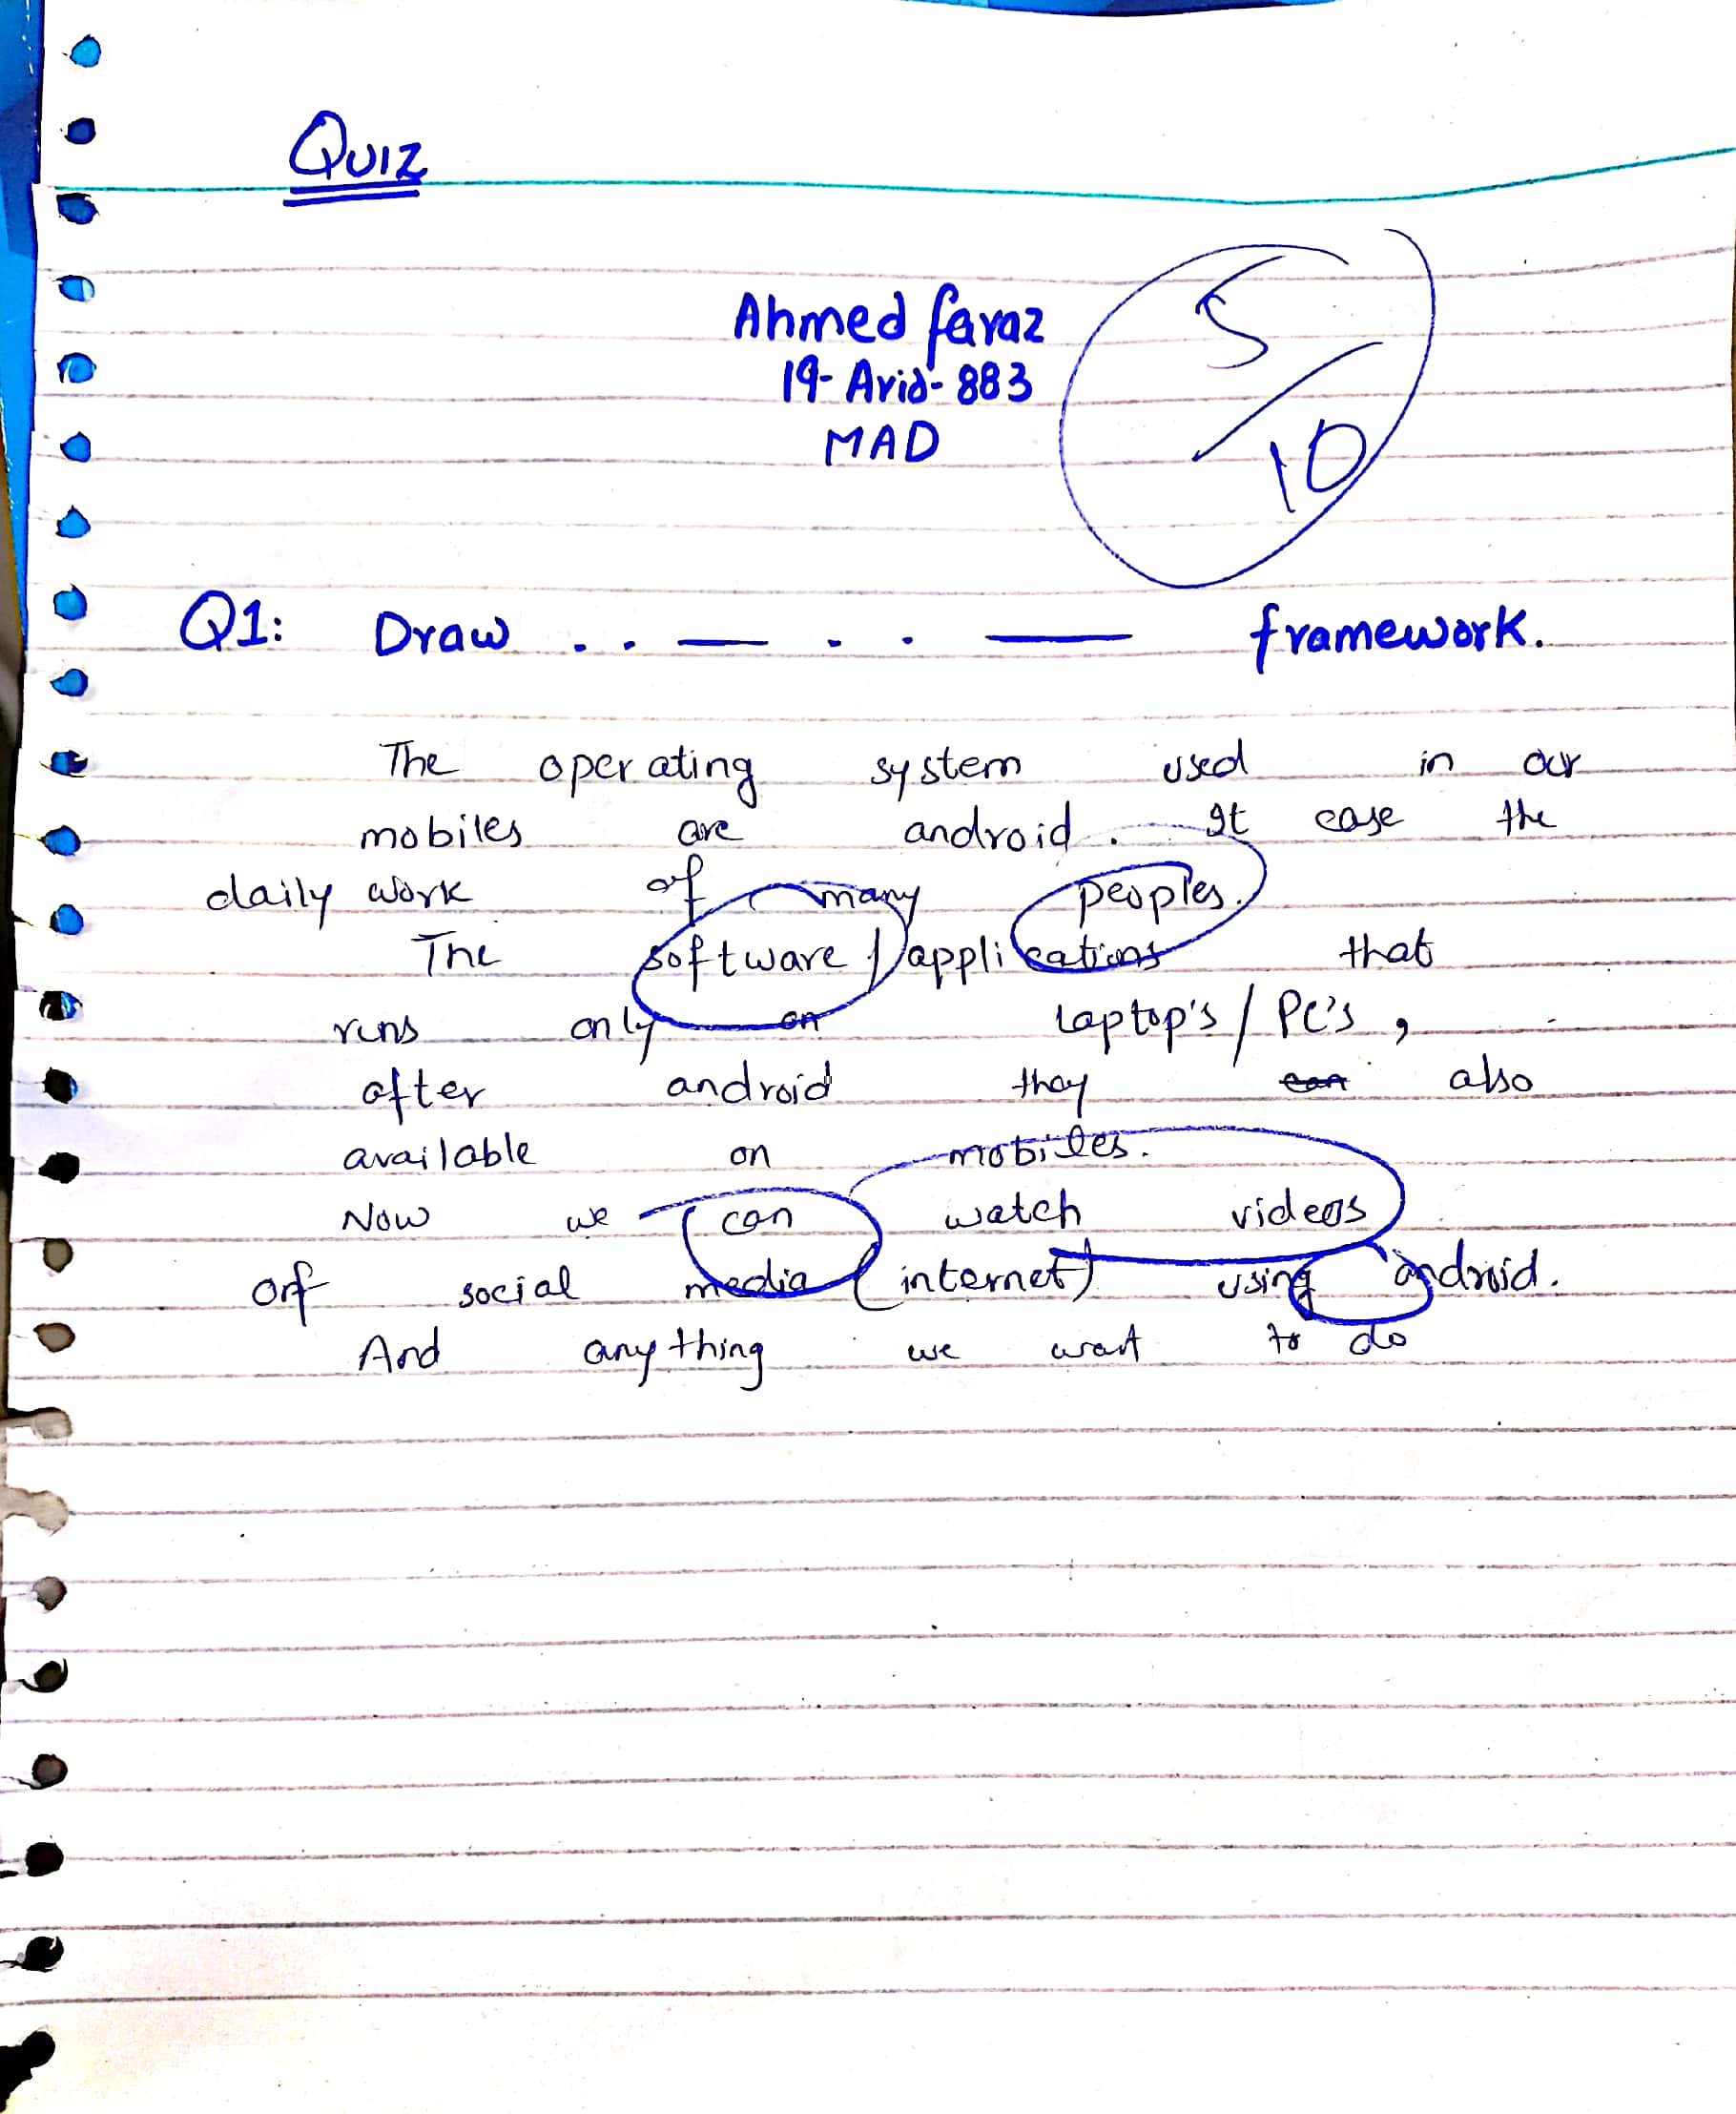 QUIZ
Ahmed faraz
19-Arid-883
MAD
5/10
Q1: Draw .. — . . — framework.
The operating system used in our
mobiles are android. It ease the
daily work of many peoples.
The software / applications that
runs only on laptop's / PC's,
after android they can also
available on mobiles.
Now we can watch videos
of social media (internet) using android.
And anything we want to do